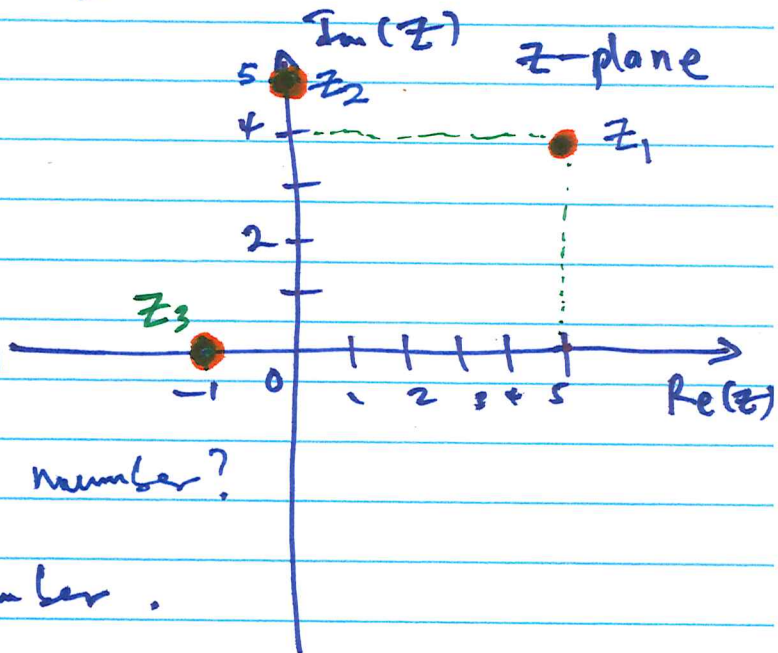 Im(z)
z-plane
5 z2
4 z1
2
z3
-1 0 1 2 3 4 5 Re(z)
number?
mber.